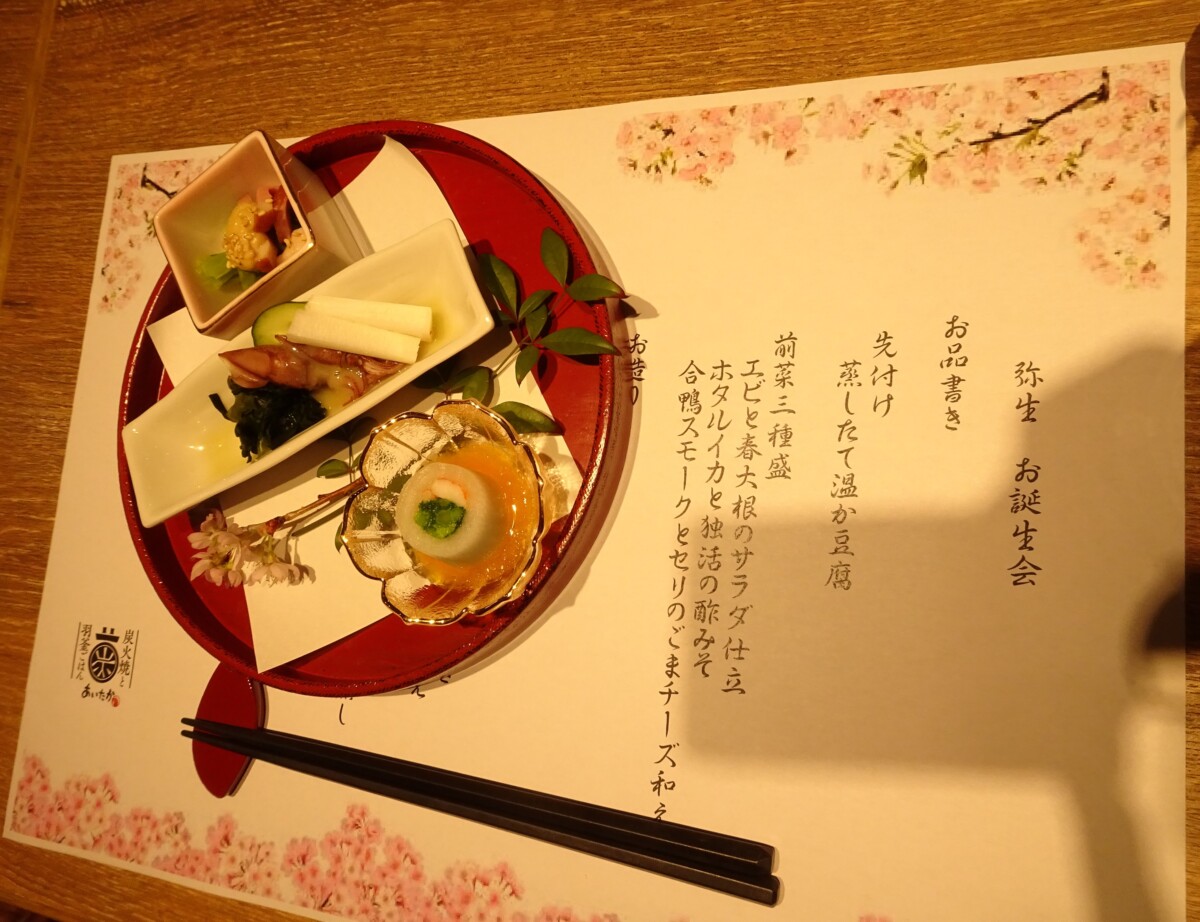 弥生 お誕生会
お品書き
先付け
蒸したて温か豆腐
前菜三種盛
エビと春大根のサラダ仕立
ホタルイカと独活の酢みそ
合鴨スモークとセリのごまチーズ和え
お造り
炭火焼と
羽釜ごはん
あいたか